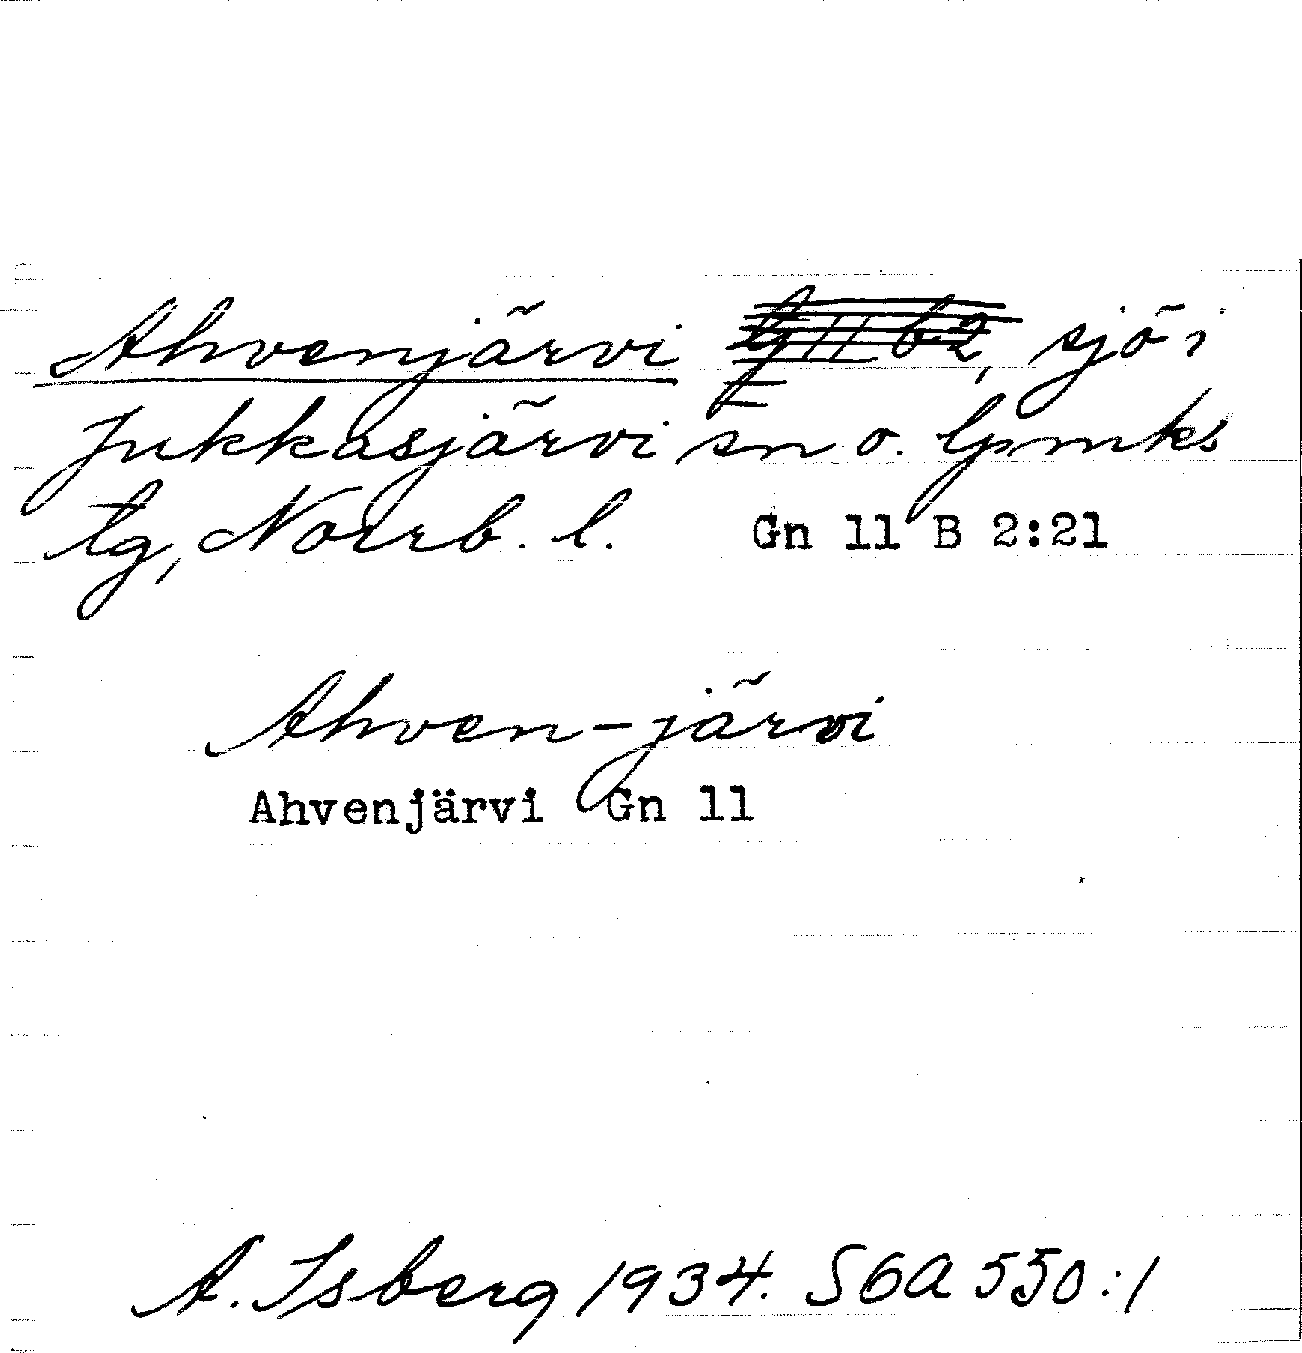 Ahvenjärvi lg 11 b2, sjö i
Jukkasjärvi sn o. lpmks
tg, Norrb. l. Gn 11 B 2:21
Ahven-järvi
Ahvenjärvi Gn 11
A. Isberg 1934. SGA 550:1